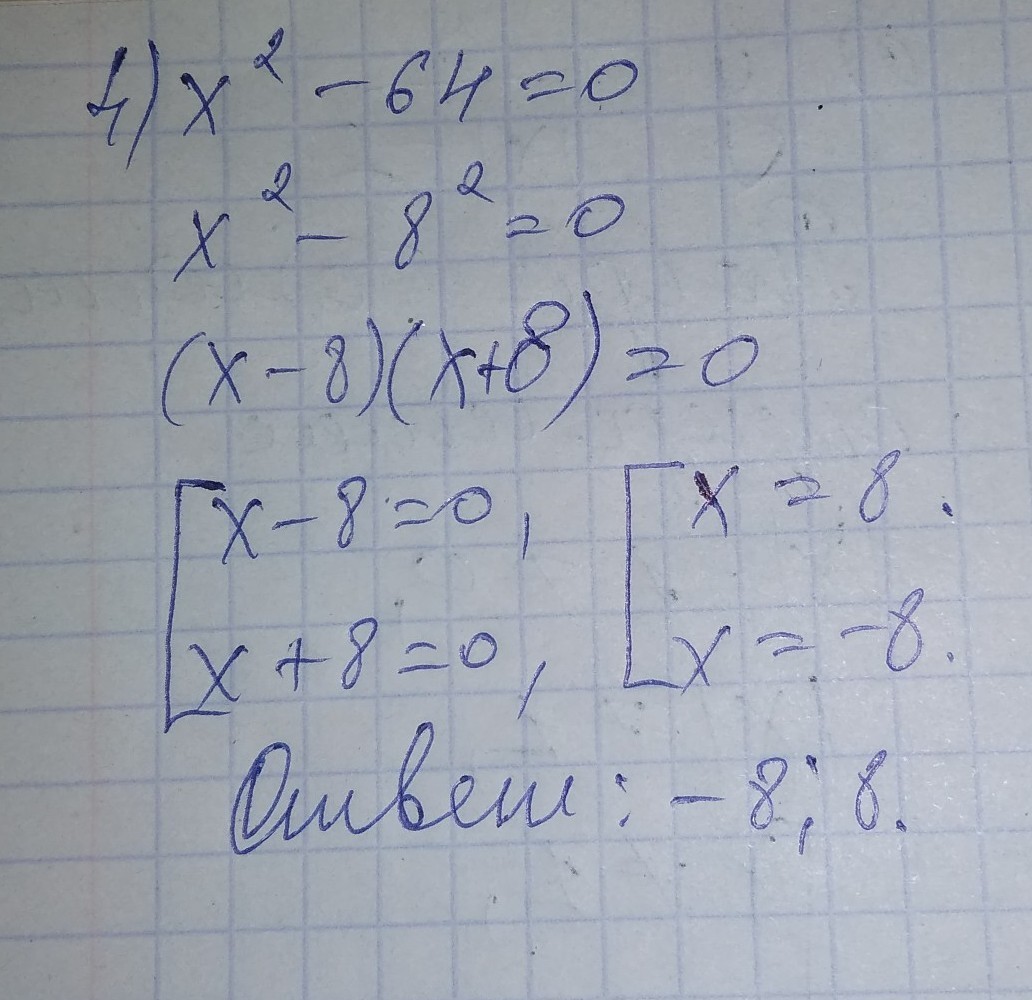 4) x² - 64 = 0
x² - 8² = 0
(x - 8)(x + 8) = 0
[ x - 8 = 0, [ x = 8.
x + 8 = 0, x = -8.
Ответ: - 8; 8.